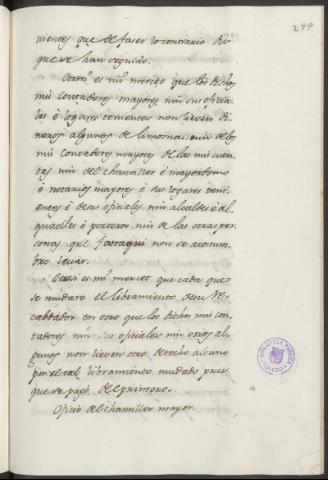 299
nientes que de faser lo contrario di
que se han seguido.
Otrosi es mi merced que los dichos
mis contadores mayores nin sus oficia
les é logares tenientes non lieven di
neros algunos de limosnas nin delos
mis contadores mayores de las mis cuen
tas nin del chanciller é mayordomo
é notarios mayores é sus logares teni
entes é de sus oficiales nin alcaldes é al
guaciles é porteros nin de las otras per
sonas que fastaqui non se acostum
bró levar.
Otrosi es mi merced que cada que
se mudare el libramiento de un Re
cabdador en otro que los dichos mis con
tadores nin sus oficiales nin otros al
gunos non lieven otro derecho alguno
por el tal libramiento mudado pues
que se pagó del primero.
Oficio del chanciller mayor.
BIBLIOTECA PUBLICA